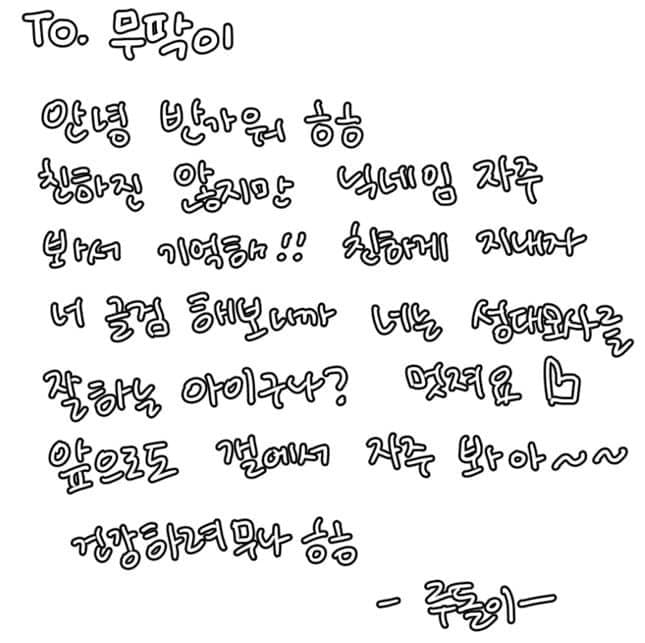 To. 무딱이
안녕 반가워 ㅎㅎ
친하진 않지만 닉네임 자주
봐서 기억해!! 친하게 지내자
너 글검 해보니까 너는 성대모사를
잘하는 아이구나? 멋져요 👍
앞으로도 갤에서 자주 봐아~~
건강하려무나 ㅎㅎ
- 루돌이 -